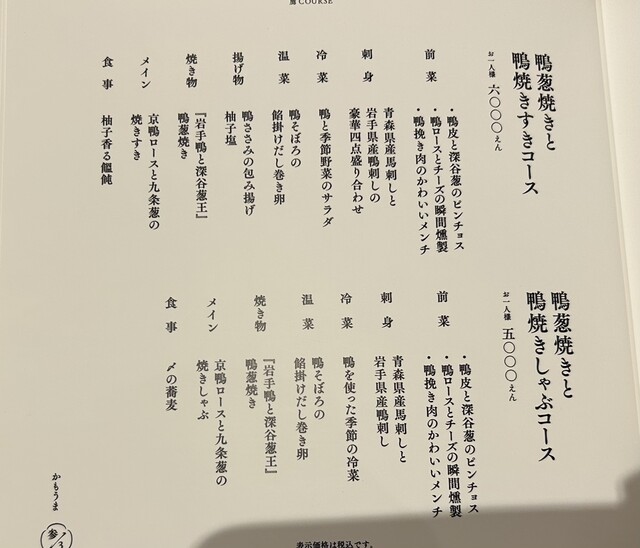 COURSE
鴨葱焼きと
鴨焼きすきコース
お一人様 六〇〇〇えん
前菜
・鴨皮と深谷葱のピンチョス
・鴨ロースとチーズの瞬間燻製
・鴨挽き肉のかわいいメンチ
刺身
青森県産馬刺しと
岩手県産鴨刺しの
豪華四点盛り合わせ
冷菜
鴨と季節野菜のサラダ
温菜
鴨そぼろの
餡掛けだし巻き卵
揚げ物
鴨ささみの包み揚げ
柚子塩
焼き物
『岩手鴨と深谷葱王』
鴨葱焼き
メイン
京鴨ロースと九条葱の
焼きすき
食事
柚子香る饂飩
鴨葱焼きと
鴨焼きしゃぶコース
お一人様 五〇〇〇えん
前菜
・鴨皮と深谷葱のピンチョス
・鴨ロースとチーズの瞬間燻製
・鴨挽き肉のかわいいメンチ
刺身
青森県産馬刺しと
岩手県産鴨刺し
冷菜
鴨を使った季節の冷菜
温菜
鴨そぼろの
餡掛けだし巻き卵
焼き物
『岩手鴨と深谷葱王』
鴨葱焼き
メイン
京鴨ロースと九条葱の
焼きしゃぶ
食事
〆の蕎麦
かもうま
参/3
表示価格は税込です。